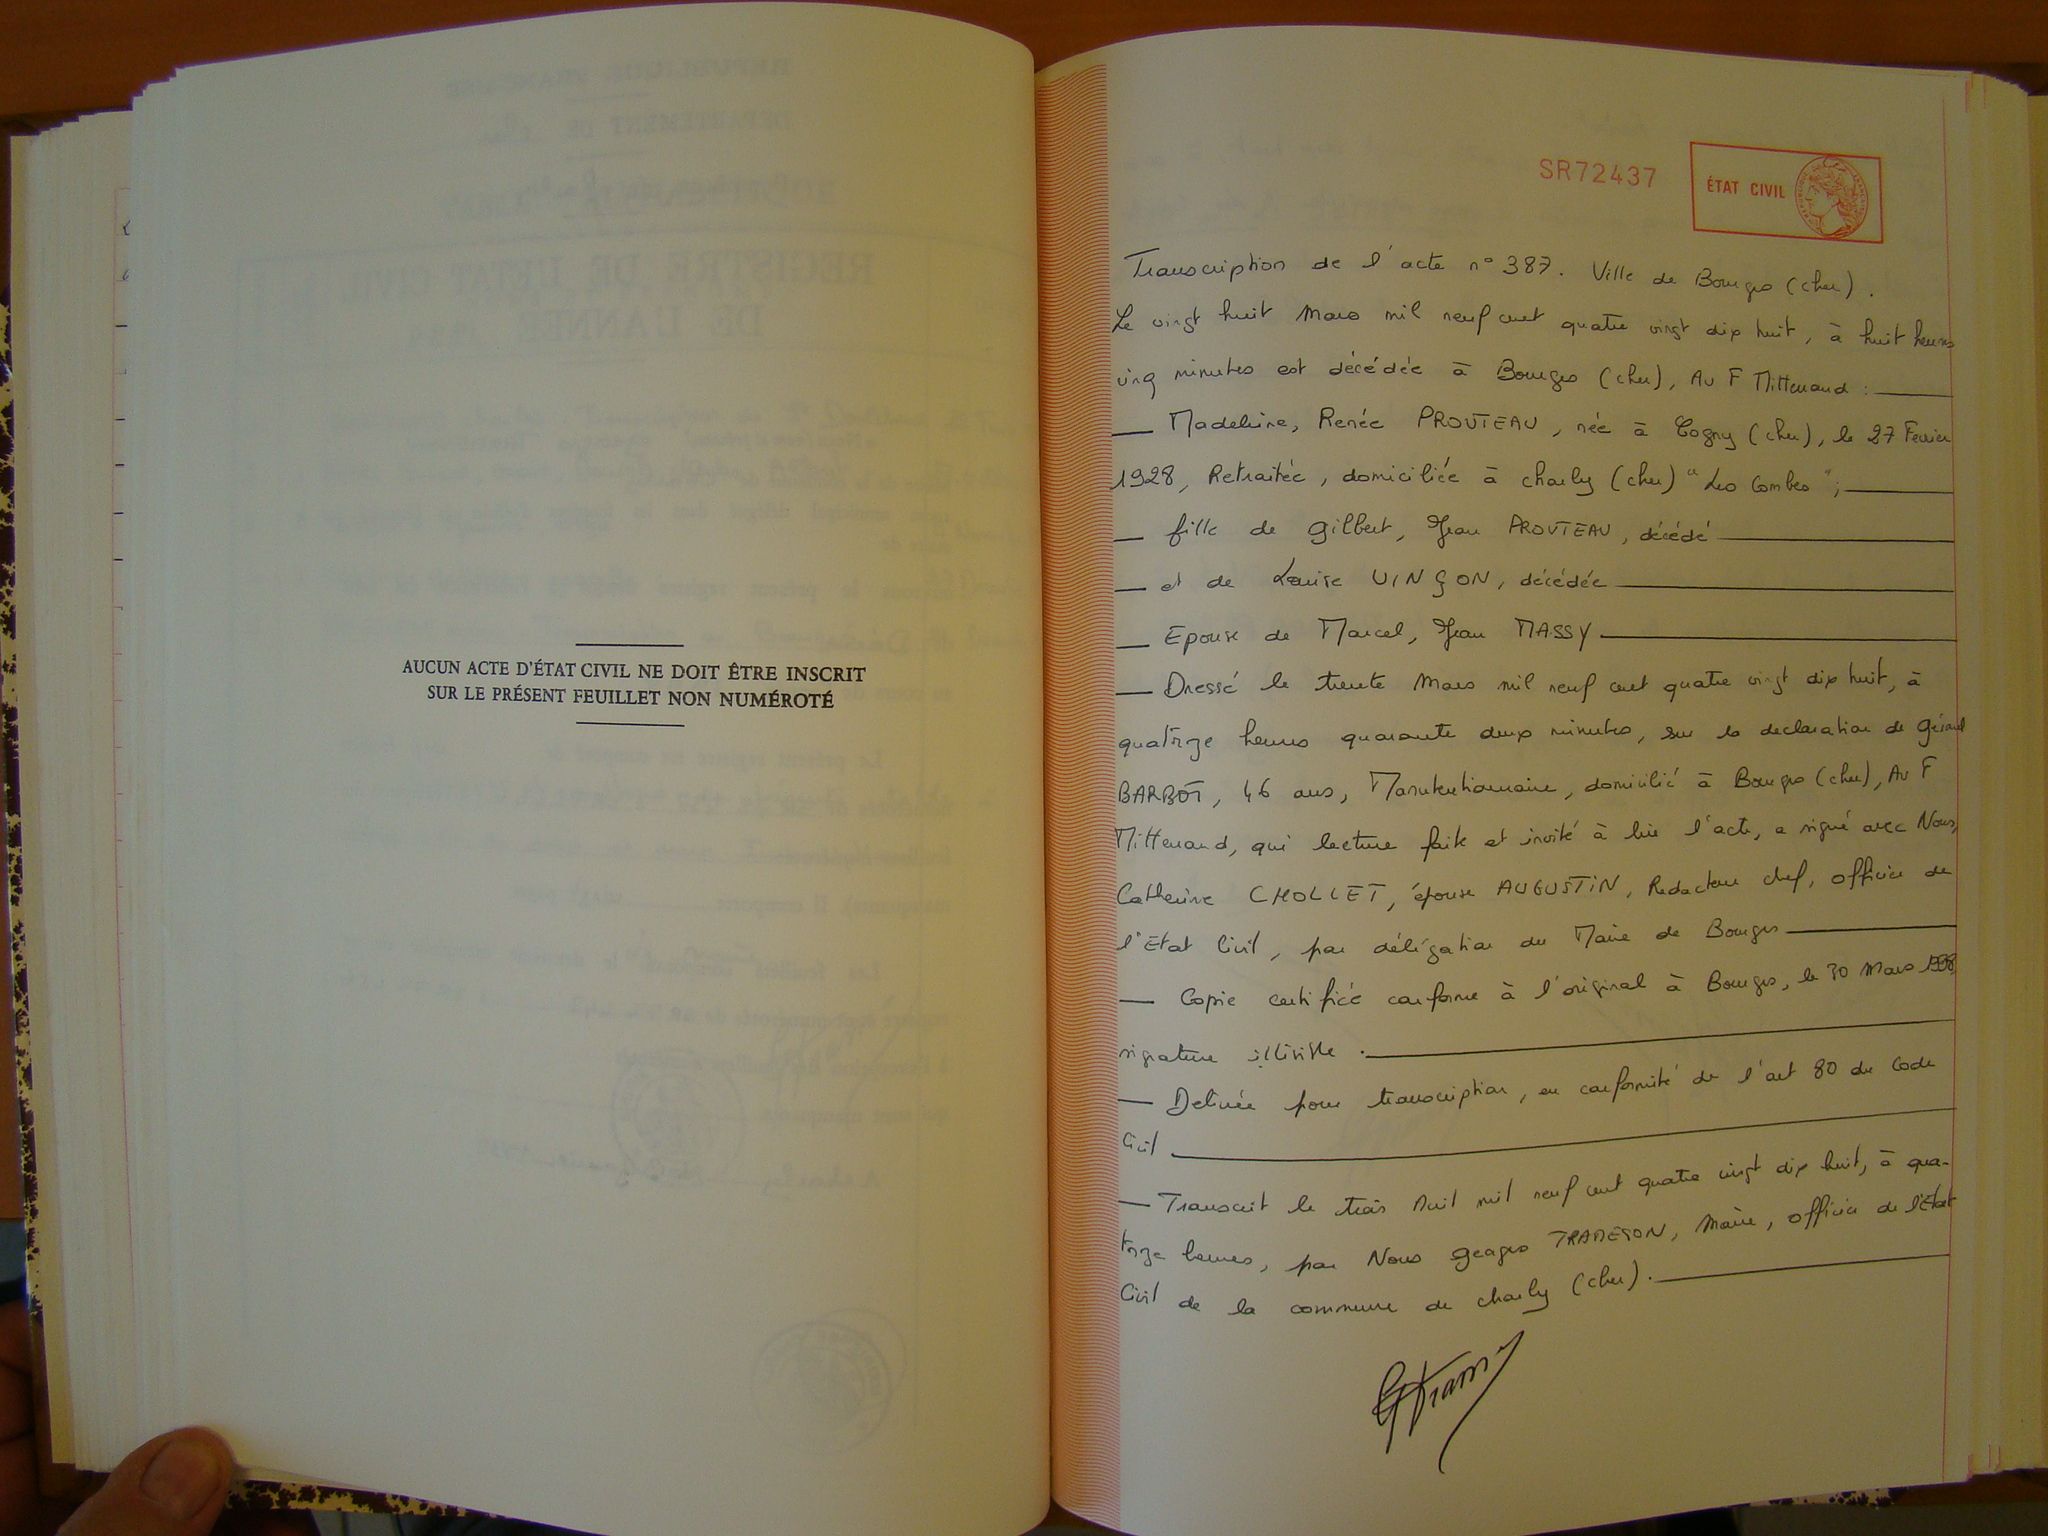 AUCUN ACTE D'ÉTAT CIVIL NE DOIT ÊTRE INSCRIT
SUR LE PRÉSENT FEUILLET NON NUMÉROTÉ
SR72437
ÉTAT CIVIL
Transcription de l'acte n° 387. Ville de Bourges (cher).
Le vingt huit Mars mil neuf cent quatre vingt dix huit, à huit heures
cinq minutes est décédée à Bourges (cher), Av F Mitterrand :
Madeleine, Renée PROUTEAU, née à Cogny (cher), le 27 Fevrier
1928, Retraitée, domiciliée à charly (cher) "Les Combes";
fille de Gilbert, Jean PROUTEAU, décédé
et de Louise VINÇON, décédée
Epouse de Marcel, Jean MASSY
Dressé le trente Mars mil neuf cent quatre vingt dix huit, à
quatorze heures quarante deux minutes, sur la declaration de Gérard
BARBOT, 46 ans, Manutentionnaire, domicilié à Bourges (cher), Av F
Mitterrand, qui lecture faite et invité à lire l'acte, a signé avec Nous,
Catherine CHOLLET, épouse AUGUSTIN, Redacteur chef, officier de
l'Etat Civil, par délégation du Maire de Bourges
Copie certifiée conforme à l'original à Bourges, le 30 Mars 1998
signature illisible.
Delivrée pour transcription, en conformité de l'art 80 du Code
Civil
Transcrit le trois Avril mil neuf cent quatre vingt dix huit, à qua-
torze heures, par Nous Georges, Maire, officier de l'Etat
Civil de la commune de charly (cher).